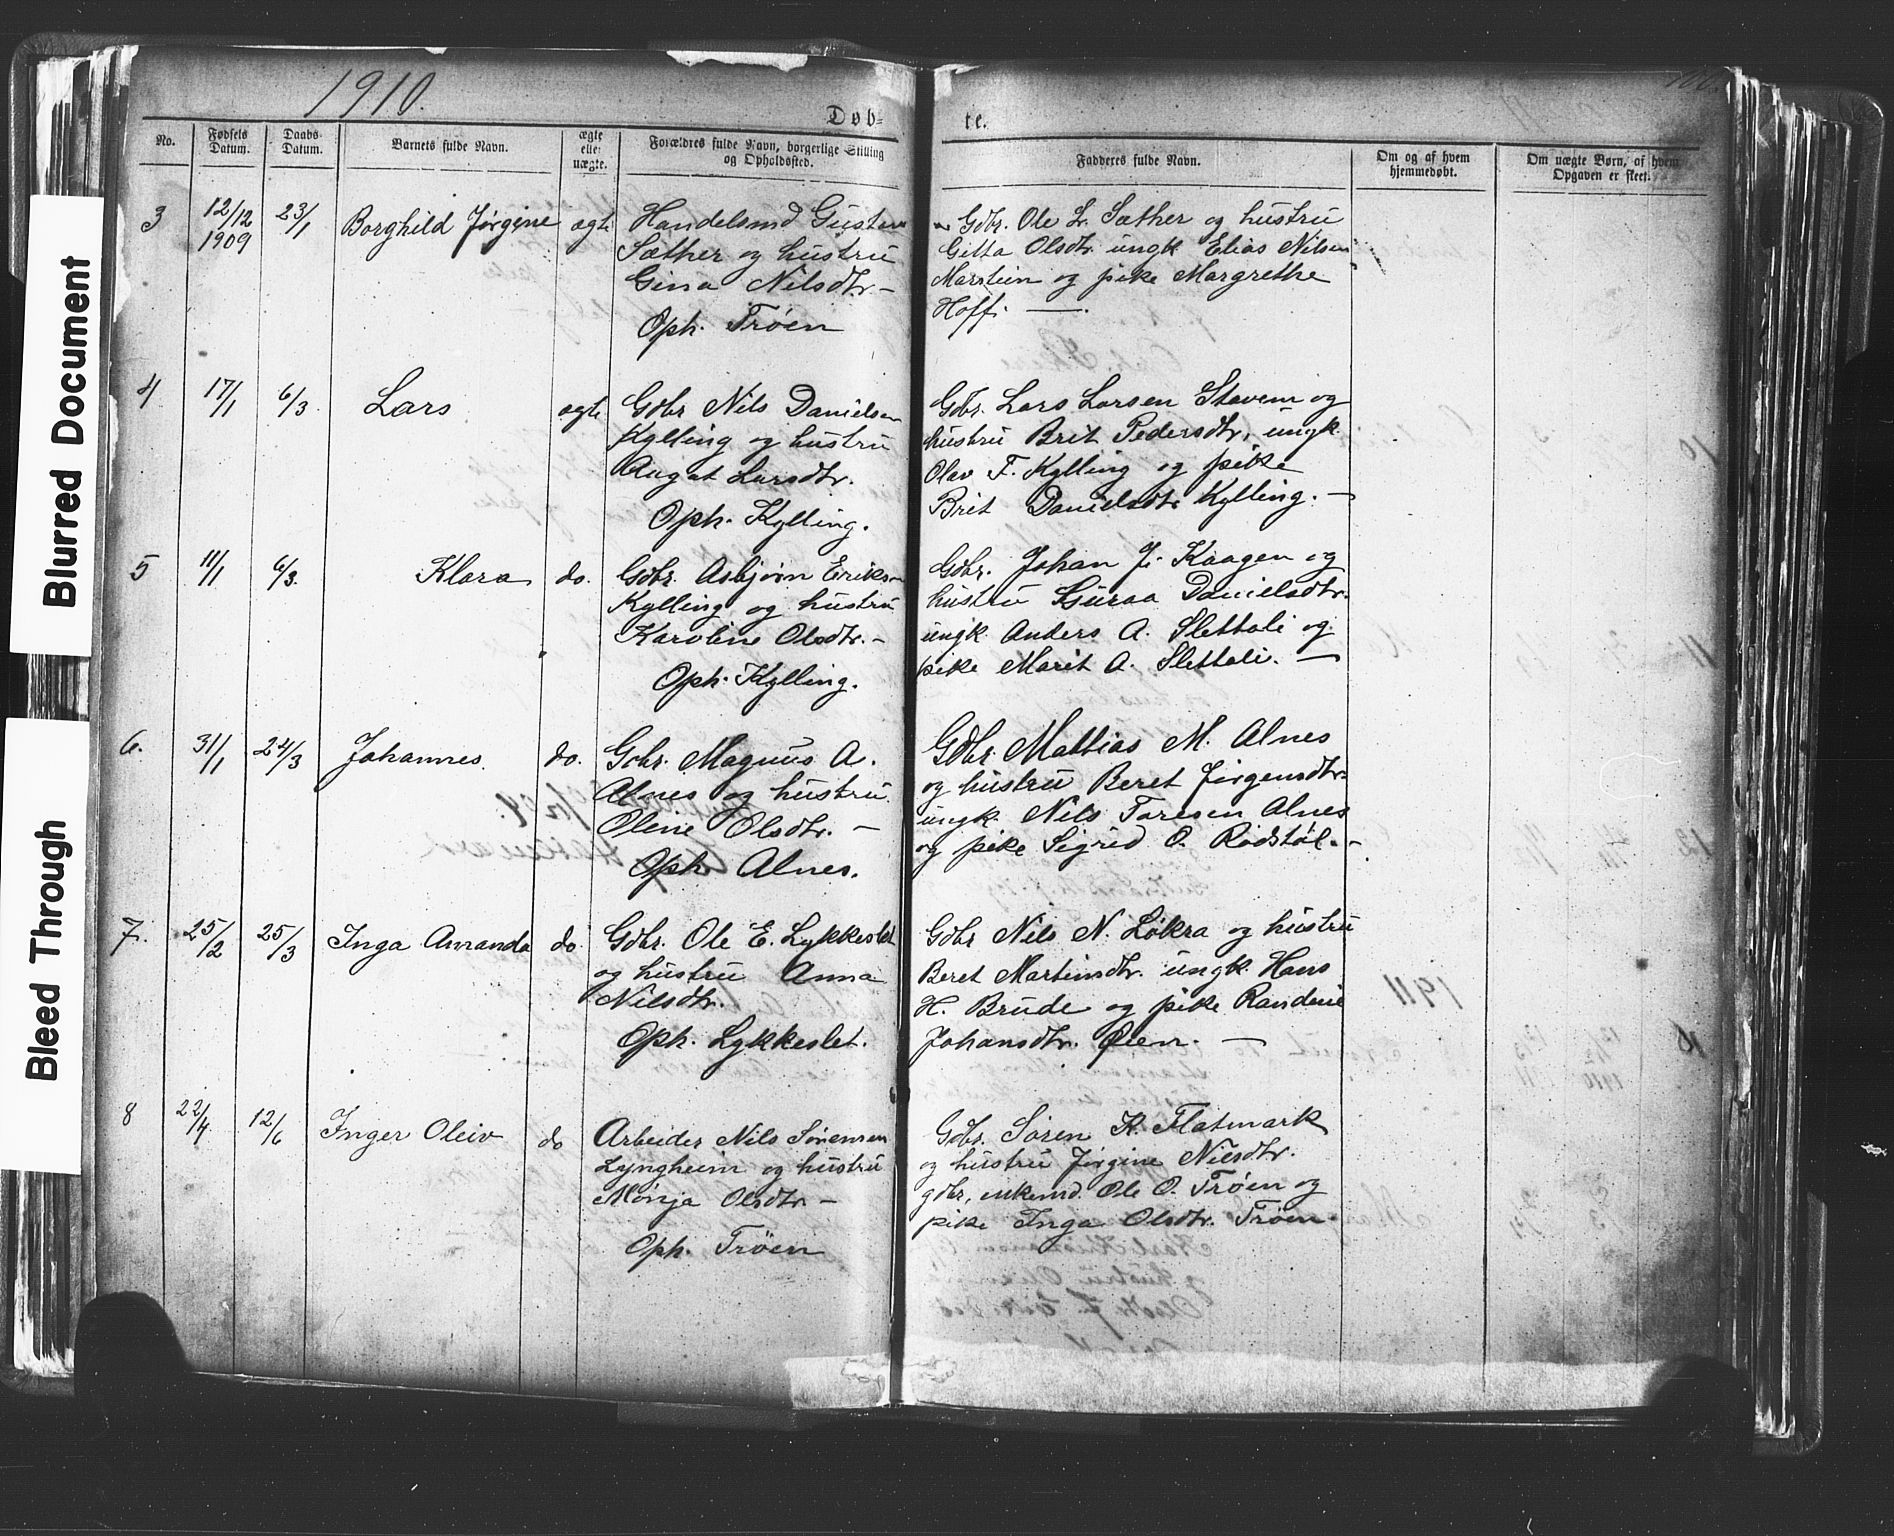 Blurred Document
Bleed Through
1910.
Døb=
te.
No.
Fødsels Datum.
Daabs- Datum.
Barnets fulde Navn.
ægte elle[r] uægte.
Forældres fulde Navn, borgerlige Stilling og Opholdssted.
Fadderes fulde Navn.
Om og af hvem hjemmedøbt.
Om uægte Børn, af hvem Opgaven er skeet.
3
12/12 1909
23/1
Borghild Jørgine
ægte
Handelsmd Gustav
Sæther og hustru
Gina Nilsdtr. –
Oph. Trøen
Gdbr. Ole L. Sæther og hustru
Gitta Olsdtr. ungk. Elias Nilsen
Marstein og pike Margrethe
Hoff. —
4
17/1
6/3
Lars
ægte
Gdbr Nils Danielsen
Kylling og hustru
Aagot Larsdtr.
Oph. Kylling.
Gdbr. Lars Larsen Stavem og
hustru Brit Pedersdtr, ungk.
Olav F. Kylling og pike
Brit Danielsdtr Kylling. –
5
11/1
6/3
Klara
do.
Gdbr. Asbjørn Eriksen
Kylling og hustru
Karoline Olsdtr. –
Oph. Kylling.
Gdbr. Johan J. Kaagen og
hustru Guraa Danielsdtr.
ungk. Anders A. Slettali og
pike Marit A. Slettali. —
6.
31/1
24/3
Johannes.
do.
Gdbr. Magnus A.
Alnes og hustru
Oline Olsdtr. –
Oph. Alnes.
Gdbr Mattias M. Alnes
og hustru Beret Jørgensdtr.
ungk. Nils Toresen Alnes
og pike Sigrid O. Rødstøl. –
7.
25/2
25/3
Inga Amanda
do.
Gdbr. Ole E. Lykkeslet
og hustru Anna
Nilsdtr.
Oph. Lykkeslet.
Gdbr Nils N. Løkra og hustru
Beret Martinsdtr. ungk. Hans
H. Brude og pike Randine
Johansdtr. Øien. —
8
22/4
12/6
Inger Oleiv
do
Arbeider Nils Sørensen
Lyngheim og hustru
Mønja Olsdtr. –
Oph. Trøen
Gdbr. Søren K. Flatmark
og hustru Jørgine Nilsdtr.
gdbr, enkemd. Ole O. Trøen og
pike Inga Olsdtr. Trøen.